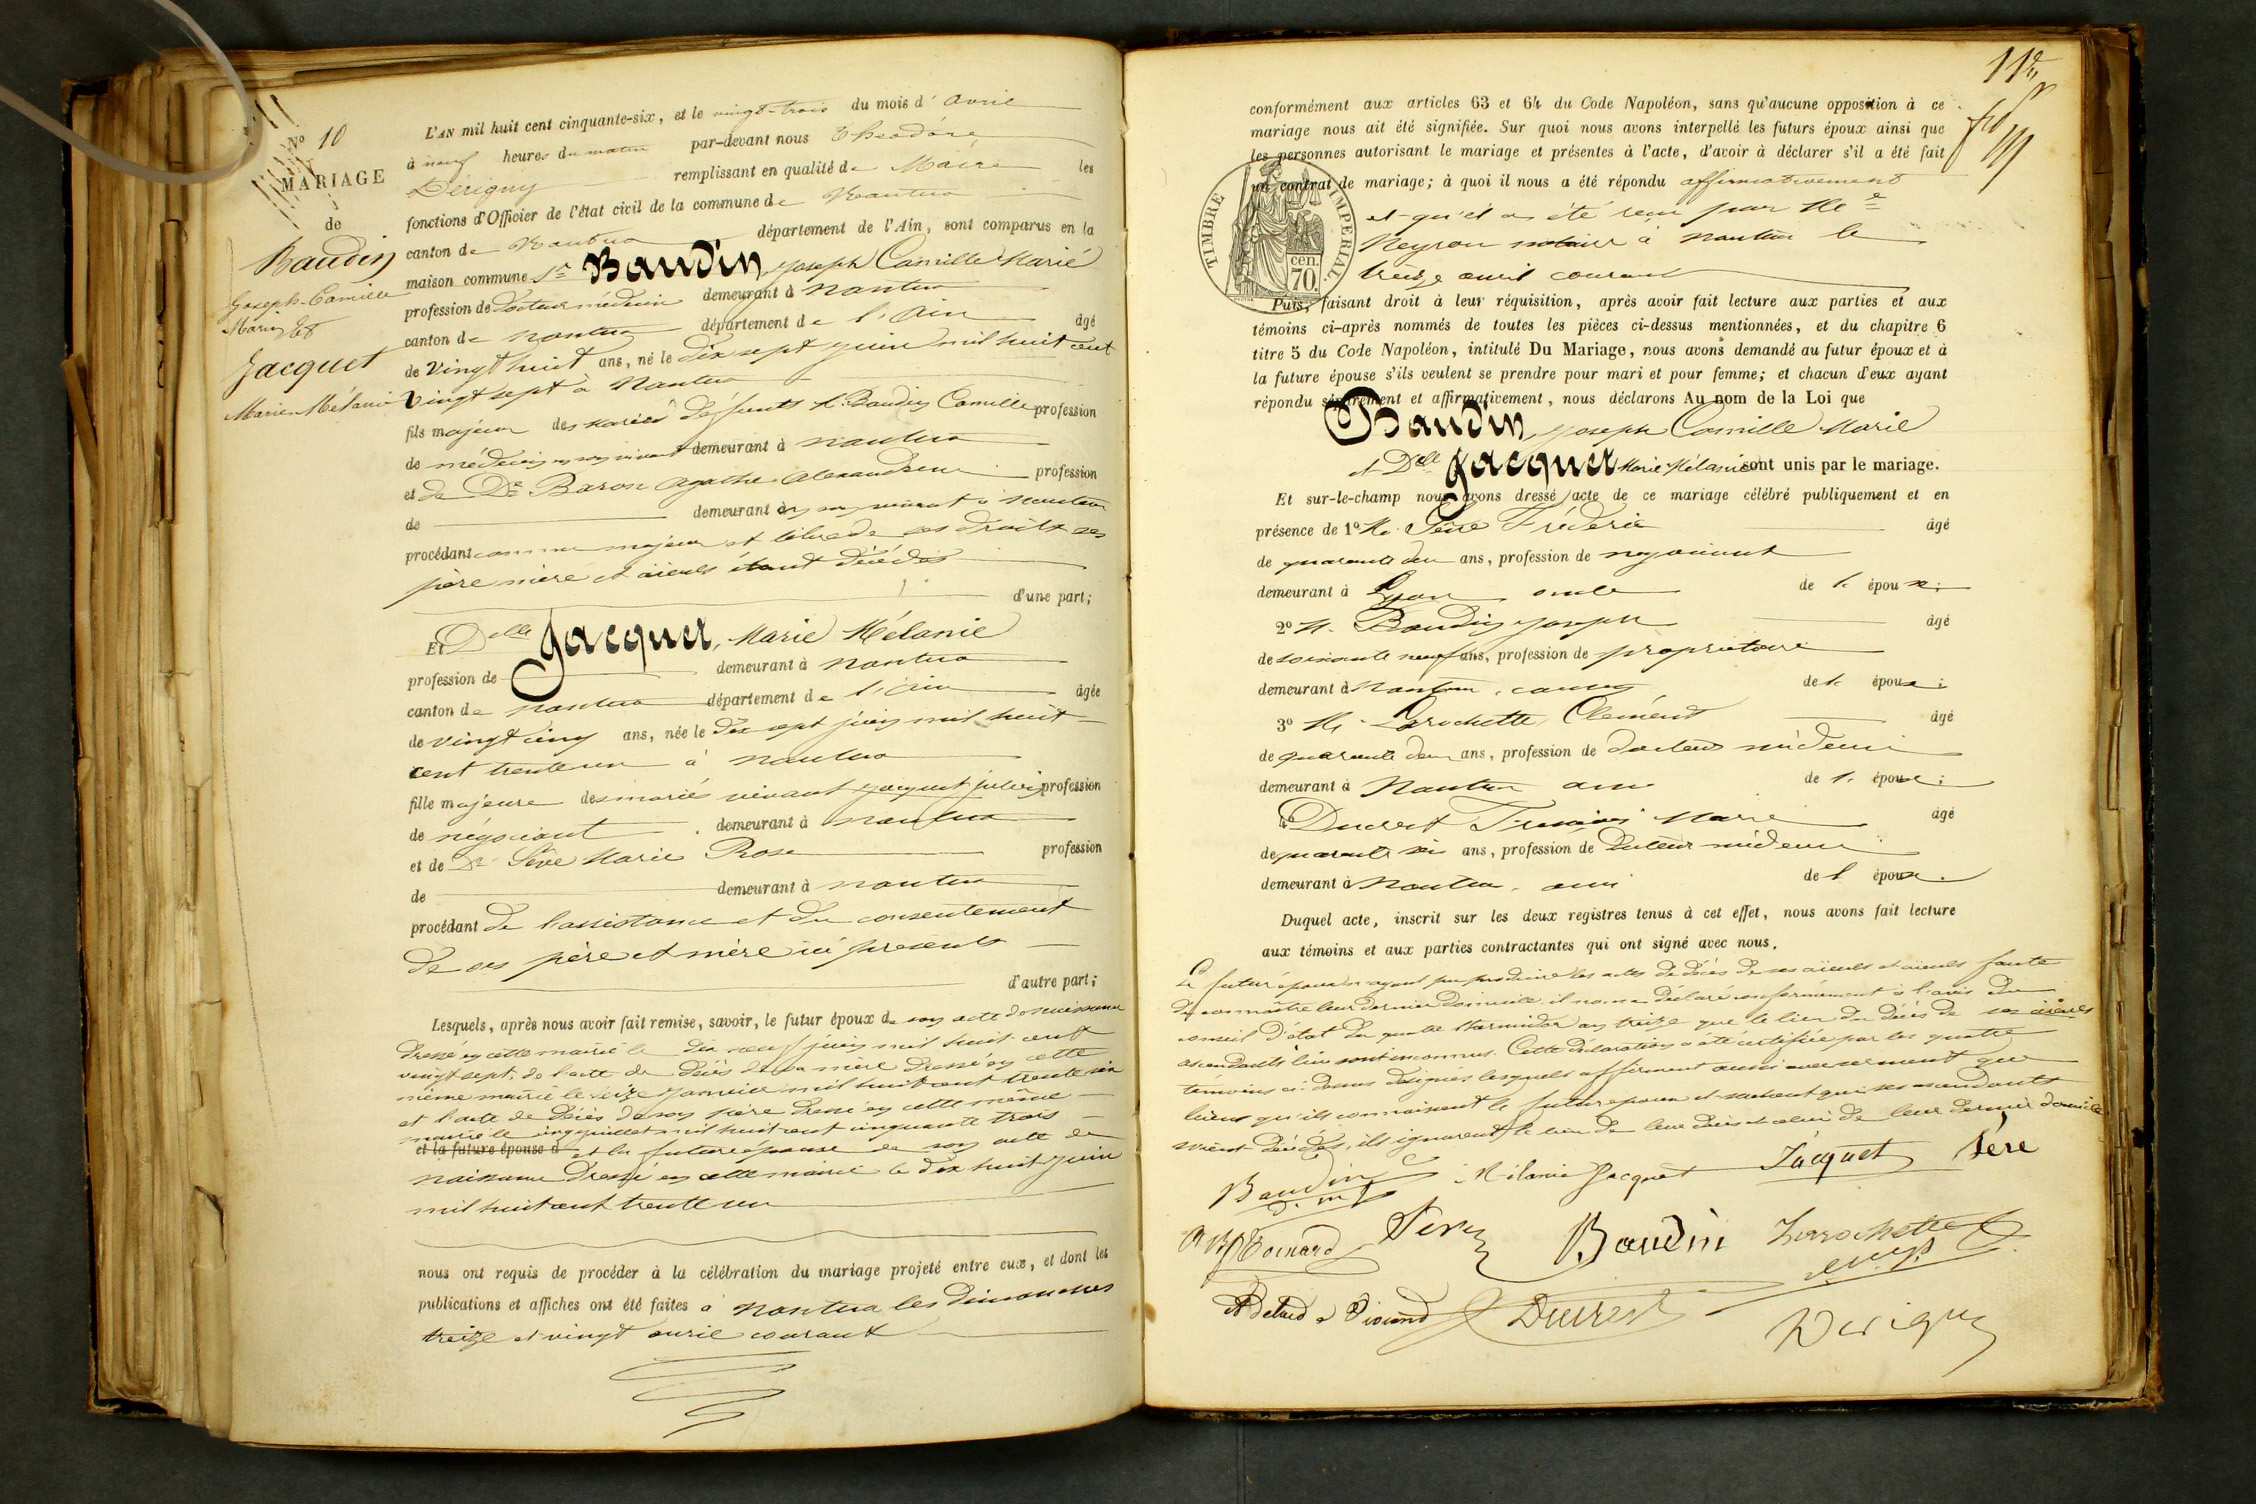 N° 10
MARIAGE
de
Baudin
Joseph-Camille
Marie Et
Jacquet
Marie-Mélanie
L'AN mil huit cent cinquante-six, et le vingt-trois du mois d'avril
à neuf heures du matin par-devant nous Théodore
Dérigny remplissant en qualité de Maire les
fonctions d'Officier de l'état civil de la commune de Nantua
canton de Nantua département de l'Ain, sont comparus en la
maison commune Sr Baudin, Joseph Camille Marie
profession de docteur médecin demeurant à Nantua
canton de Nantua département de l'Ain âgé
de vingt huit ans, né le dix sept juin mil huit cent
vingt sept à Nantua
fils majeur des mariés défunts Mr. Baudin Camille profession
de médecin en son vivant demeurant à nantua
et de De Baron Agathe Alexandrine profession
de demeurant en son vivant à nantua
procédant comme majeur et libre de ses droits ses
père mère et aïeuls étant décédés
d'une part;
Et Delle Jacquet, Marie Mélanie
profession de demeurant à Nantua
canton de Nantua département de l'Ain âgée
de vingt cinq ans, née le dix sept juin mil huit
cent trente un à Nantua
fille majeure des mariés vivant jacquet julien profession
de négociant demeurant à Nantua
et de De Sève Marie Rose profession
de demeurant à nantua
procédant de l'assistance et du consentement
de ses père et mère ici présents
d'autre part;
Lesquels, après nous avoir fait remise, savoir, le futur époux de son acte de naissance
dressé en cette mairie le dix neuf juin mil huit cent
vingt sept, de l'acte de décès de sa mère dressé en cette
même mairie le seize janvier mil huit cent trente six
et l'acte de décès de son père dressé en cette même
mairie le cinq juillet mil huit cent cinquante trois
et la future épouse d et la future épouse de son acte de
naissance dressé en cette mairie le dix huit juin
mil huit cent trente un
nous ont requis de procéder à la célébration du mariage projeté entre eux, et dont les
publications et affiches ont été faites à Nantua les dimanches
treize et vingt avril courant
11
conformément aux articles 63 et 64 du Code Napoléon, sans qu'aucune opposition à ce
mariage nous ait été signifiée. Sur quoi nous avons interpellé les futurs époux ainsi que
les personnes autorisant le mariage et présentes à l'acte, d'avoir à déclarer s'il a été fait
un contrat de mariage; à quoi il nous a été répondu affirmativement
et qu'il a été reçu par Me
Neyron notaire à Nantua le
treize avril courant
TIMBRE IMPÉRIAL
70 cen.
Puis, faisant droit à leur réquisition, après avoir fait lecture aux parties et aux
témoins ci-après nommés de toutes les pièces ci-dessus mentionnées, et du chapitre 6
titre 5 du Code Napoléon, intitulé Du Mariage, nous avons demandé au futur époux et à
la future épouse s'ils veulent se prendre pour mari et pour femme; et chacun d'eux ayant
répondu séparément et affirmativement, nous déclarons Au nom de la Loi que
Baudin, Joseph Camille Marie
et Delle Jacquet Marie Mélanie sont unis par le mariage.
Et sur-le-champ nous avons dressé acte de ce mariage célébré publiquement et en
présence de 1° Mr. Sève Fréderic âgé
de quarante deux ans, profession de negociant
demeurant à Lyon oncle de l' épouse;
2° Mr. Baudin joseph âgé
de soixante neuf ans, profession de propriétaire
demeurant à Nantua, cousin de l' époux;
3° Mr. Larochette Clément âgé
de quarante deux ans, profession de docteur médecin
demeurant à Nantua ami de l' époux;
4° Ducrest François Marie âgé
de quarante six ans, profession de Docteur médecin
demeurant à Nantua, ami de l' époux.
Duquel acte, inscrit sur les deux registres tenus à cet effet, nous avons fait lecture
aux témoins et aux parties contractantes qui ont signé avec nous.
Le futur époux n'ayant pu produire les actes de décès de ses aïeuls et aïeules faute
de connaître leur dernier domicile il nous a déclaré conformément à l'avis du
conseil d'état du quatre thermidor an treize que le lieu du décès de ses aïeuls
ascendants lui sont inconnus. Cette déclaration a été certifiée par les quatre
témoins ci-dessus désignés lesquels affirment aussi avec serment que
bien qu'ils connaissent le futur époux et sachant que ses ascendants
soient décédés, ils ignorent le lieu de leur décès et celui de leur dernier domicile
Baudin
d. m.
Mélanie Jacquet
Jacquet
Sève
Baudin
Larochette
Ducrest
Dérigny